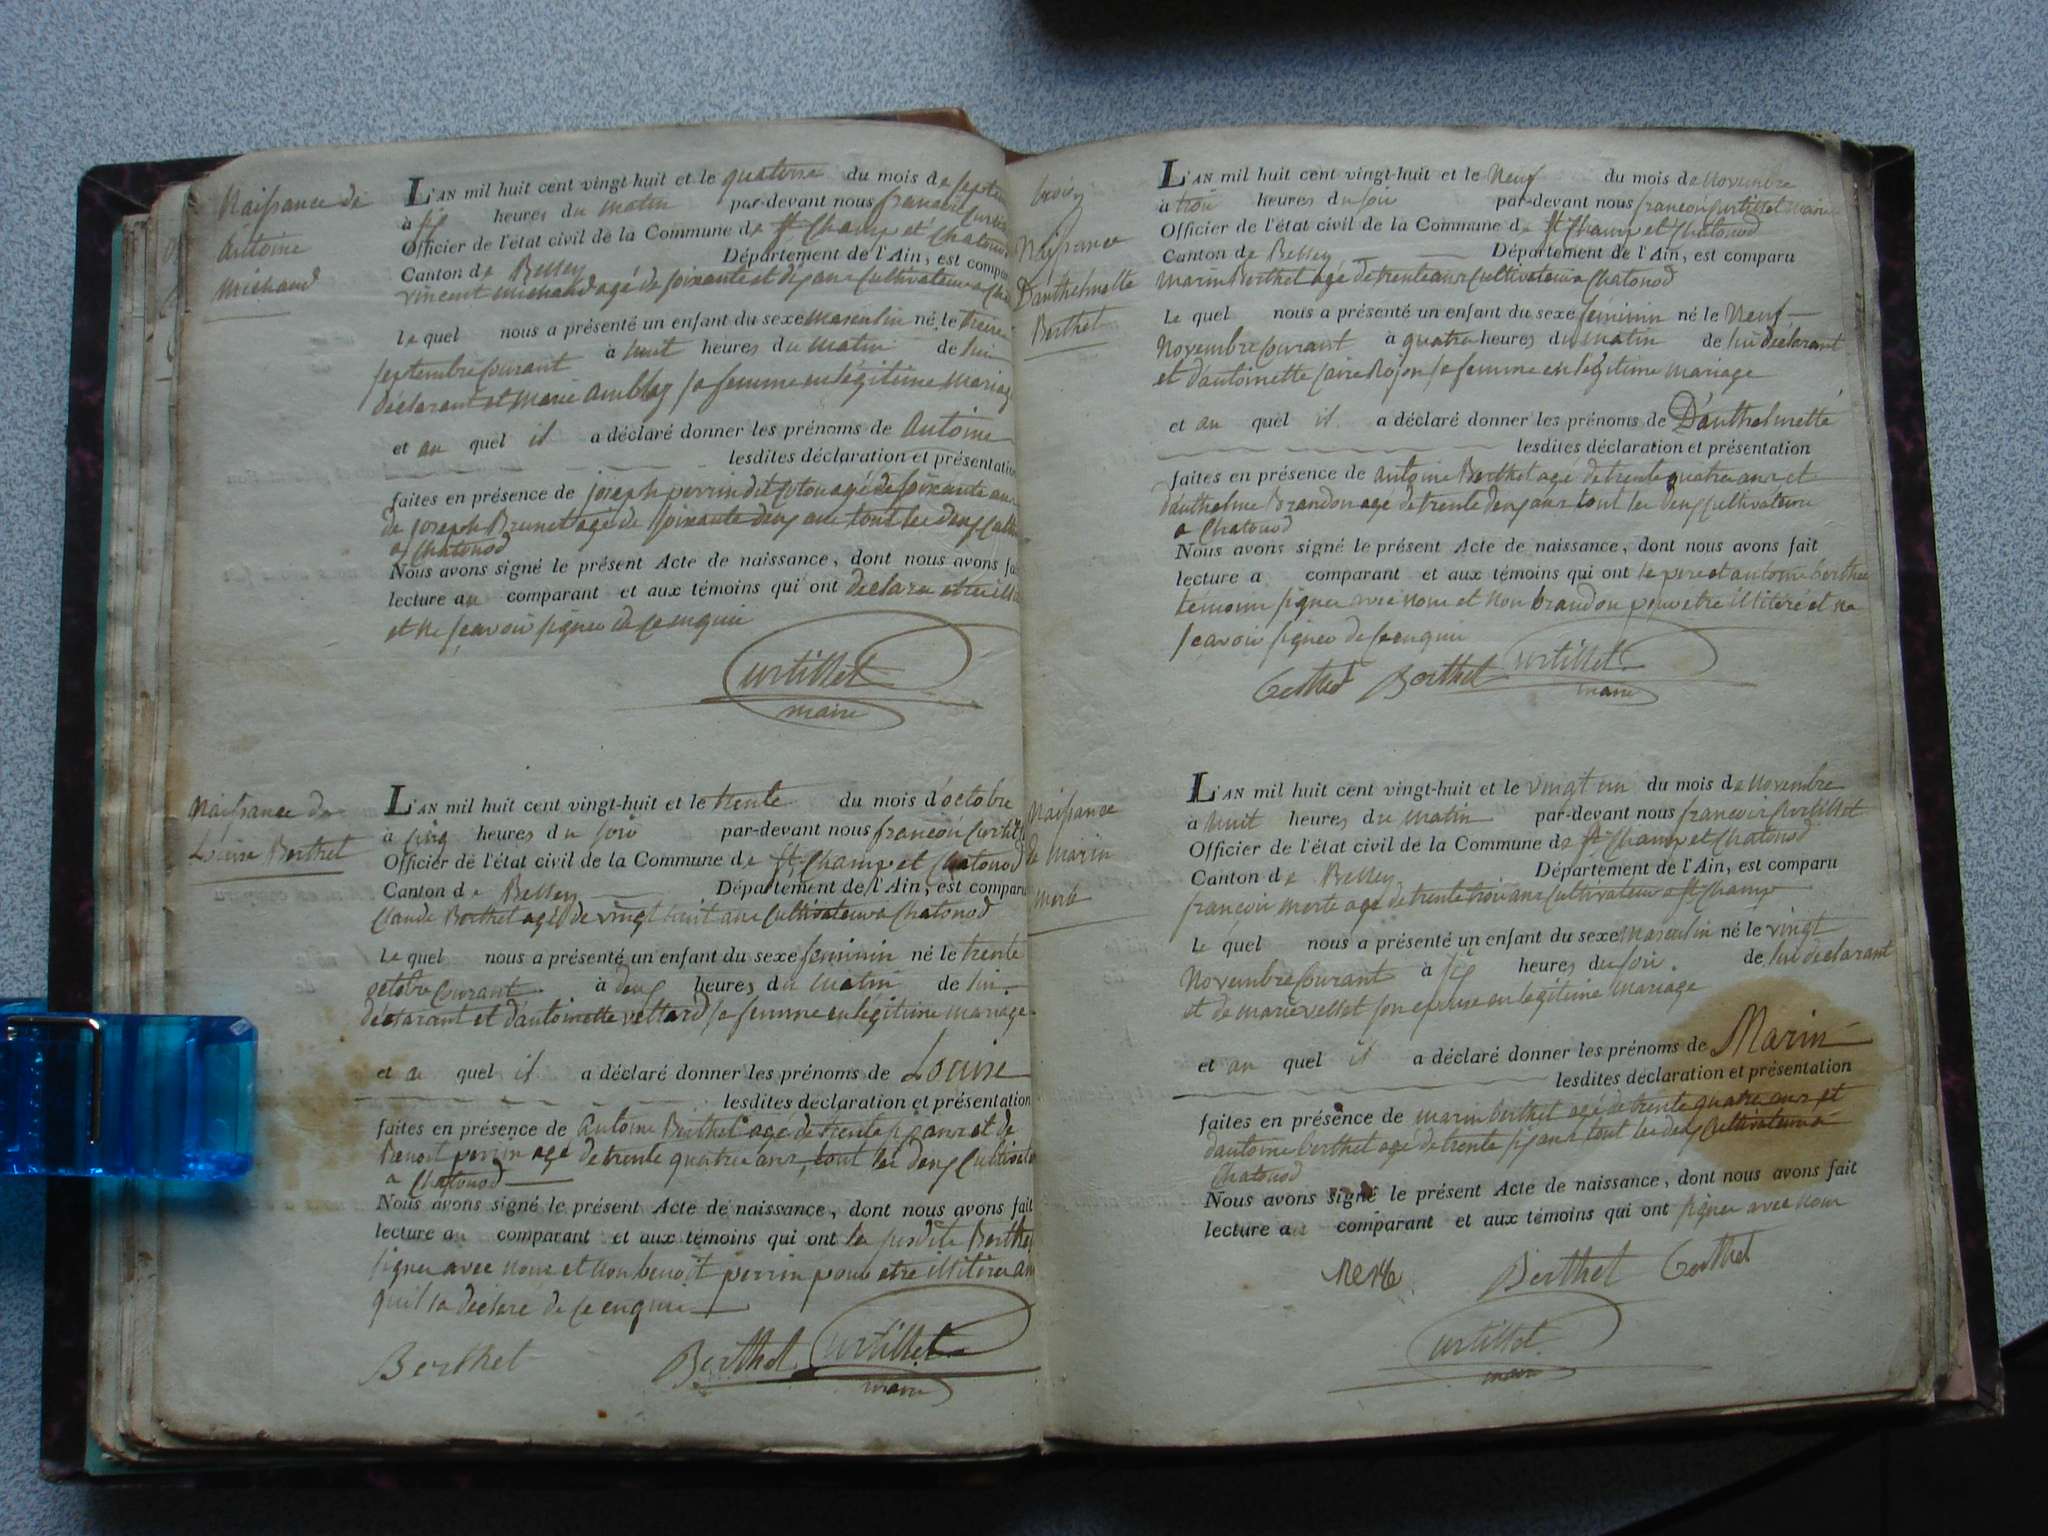 Naissance de
Antoine
michaud
L'AN mil huit cent vingt-huit et le quatorze du mois de septem
à six heures du matin par-devant nous francois Curti
Officier de l'état civil de la Commune de St Champ et Chatonod
Canton de Belley Département de l'Ain, est compar
vincent michaud agé de soixante et dix ans Cultivateur a Cha
le quel nous a présenté un enfant du sexe masculin né le treize
septembre courant à huit heures du matin de lui
déclarant et marie amblay sa femme en légitime mariag
et au quel il a déclaré donner les prénoms de Antoine
lesdites déclaration et présentation
faites en présence de joseph perrin dit agé de soixante ans
de joseph Brunet agé de soixante deux ans tout les deux Culti
a Chatonod
Nous avons signé le présent Acte de naissance, dont nous avons fai
lecture au comparant et aux témoins qui ont déclaré etre illi
et ne sçavoir signer de ce enquis
Curtillet
maire
Naissance de
Louise Berthet
L'AN mil huit cent vingt-huit et le trente du mois d'octobre
à cinq heures du soir par-devant nous francois Curtill
Officier de l'état civil de la Commune de St Champ et Chatonod
Canton de Belley Département de l'Ain, est comparu
Claude Berthet agé de vingt huit ans Cultivateur a Chatonod
Le quel nous a présenté un enfant du sexe feminin né le trente
octobre courant à deux heures du matin de lui
déclarant et d'antoinette vettard sa femme en légitime mariage
et au quel il a déclaré donner les prénoms de Louise
lesdites déclaration et présentation
faites en présence de Antoine Berthet agé de trente six ans et de
Benoit perrin agé de trente quatre ans, tout les deux Cultivate
a Chatonod
Nous avons signé le présent Acte de naissance, dont nous avons fait
lecture au comparant et aux témoins qui ont les susdits Berthet
signer avec nous et non benoit perrin pour etre illitéré ain
qu'il la déclaré de ce enquis
Berthet Berthet Curtillet
maire
Naissance
D'anthelmette
Berthet
L'AN mil huit cent vingt-huit et le Neuf du mois de Novembre
à trois heures du soir par-devant nous francois Curtillet maire
Officier de l'état civil de la Commune de St Champ et Chatonod
Canton de Belley Département de l'Ain, est comparu
Marin Berthet agé de trente ans Cultivateur a Chatonod
Le quel nous a présenté un enfant du sexe feminin né le Neuf
Novembre courant à quatre heures du matin de lui déclarant
et d'antoinette sa femme en légitime mariage
et au quel il a déclaré donner les prénoms de D'anthelmette
lesdites déclaration et présentation
faites en présence de antoine Berthet agé de trente quatre ans et
d'anthelme Brandon agé de trente deux ans tout les deux Cultivateurs
a Chatonod
Nous avons signé le présent Acte de naissance, dont nous avons fait
lecture a comparant et aux témoins qui ont le pere et antoine berthet
témoins signer avec nous et non brandon pour etre illitéré et ne
sçavoir signer de ce enquis
Berthet Berthet Curtillet
maire
Naissance
de Marin
merle
L'AN mil huit cent vingt-huit et le vingt un du mois de Novembre
à huit heures du matin par-devant nous francois Curtillet
Officier de l'état civil de la Commune de St Champ et Chatonod
Canton de Belley Département de l'Ain, est comparu
francois merle agé de trente trois ans Cultivateur a St Champ
Le quel nous a présenté un enfant du sexe masculin né le vingt
Novembre courant à six heures du soir. de lui déclarant
et de marie vellet son epouse en legitime mariage
et au quel il a déclaré donner les prénoms de Marin
lesdites déclaration et présentation
faites en présence de marin berthet agé de trente quatre ans et
d'antoine berthet agé de trente six ans tout les deux Cultivateurs a
Chatonod
Nous avons signé le présent Acte de naissance, dont nous avons fait
lecture au comparant et aux témoins qui ont signer avec nous
Merle Berthet Berthet
Curtillet
maire